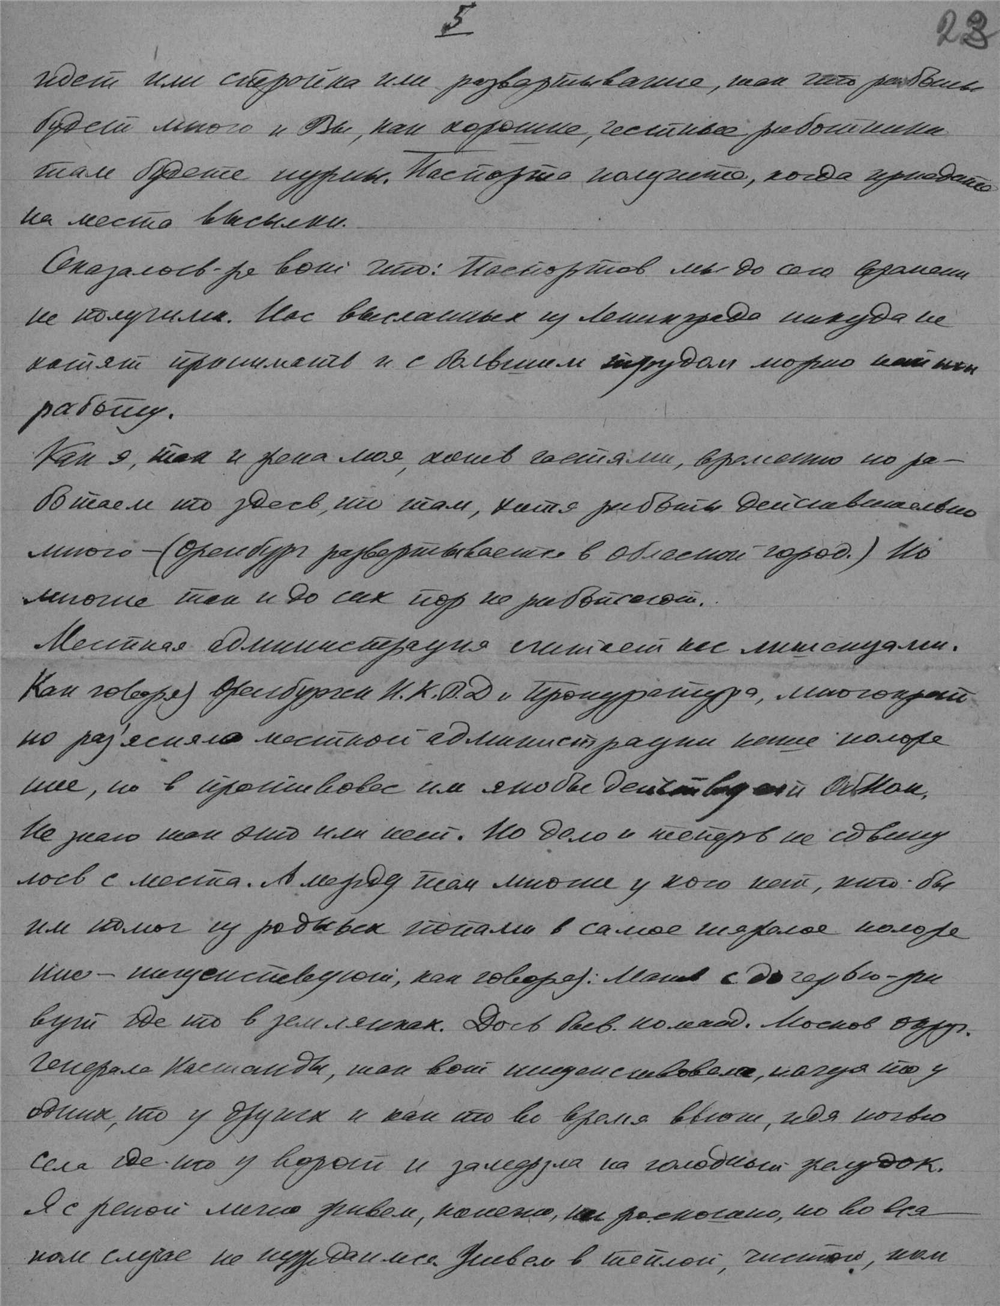 5
23
идет или стройка или развертывание, так что работы
будет много и Вы, как хорошие, честные работники
там будете нужны. Паспорта получите, когда приедете
на место высылки.
Оказалось-же вот что: Паспортов мы до сего времени
не получили. Нас высланных из Ленинграда никуда не
хотят принимать и с большим трудом можно найти
работу.
Как я, так и жена моя, хотя частями, временно но ра-
ботаем то здесь, то там, хотя работы действительно
много - (Оренбург развертывается в областной город.) Но
многие так и до сих пор не работают.
Местная администрация считает нас лишенцами.
Как говорят Оренбургск. Н.К.В.Д и Прокуратура, многократ
но раз'ясняло местной администрации наше положе
ние, но в противовес им якобы действует ОбКом.
Не знаю так это или нет. Но дело и теперь не сдвину
лось с места. А между тем многие у кого нет, кто-бы
им помог из родных попали в самое тяжелое положе
ние - нищенствуют, как говорят: Мать с дочерью - жи
вут где то в землянках. Дочь быв. команд. Москов округ.
генерала Костанды, так вот нищенствовала, ночуя то у
одних, то у других и как то во время вьюги, идя ночью
села где-то у ворот и замерзла на голодный желудок.
Я с женой лично живем, конечно, не роскошно, но во вся-
ком случае не нуждаемся. Живем в теплой, чистой, ком